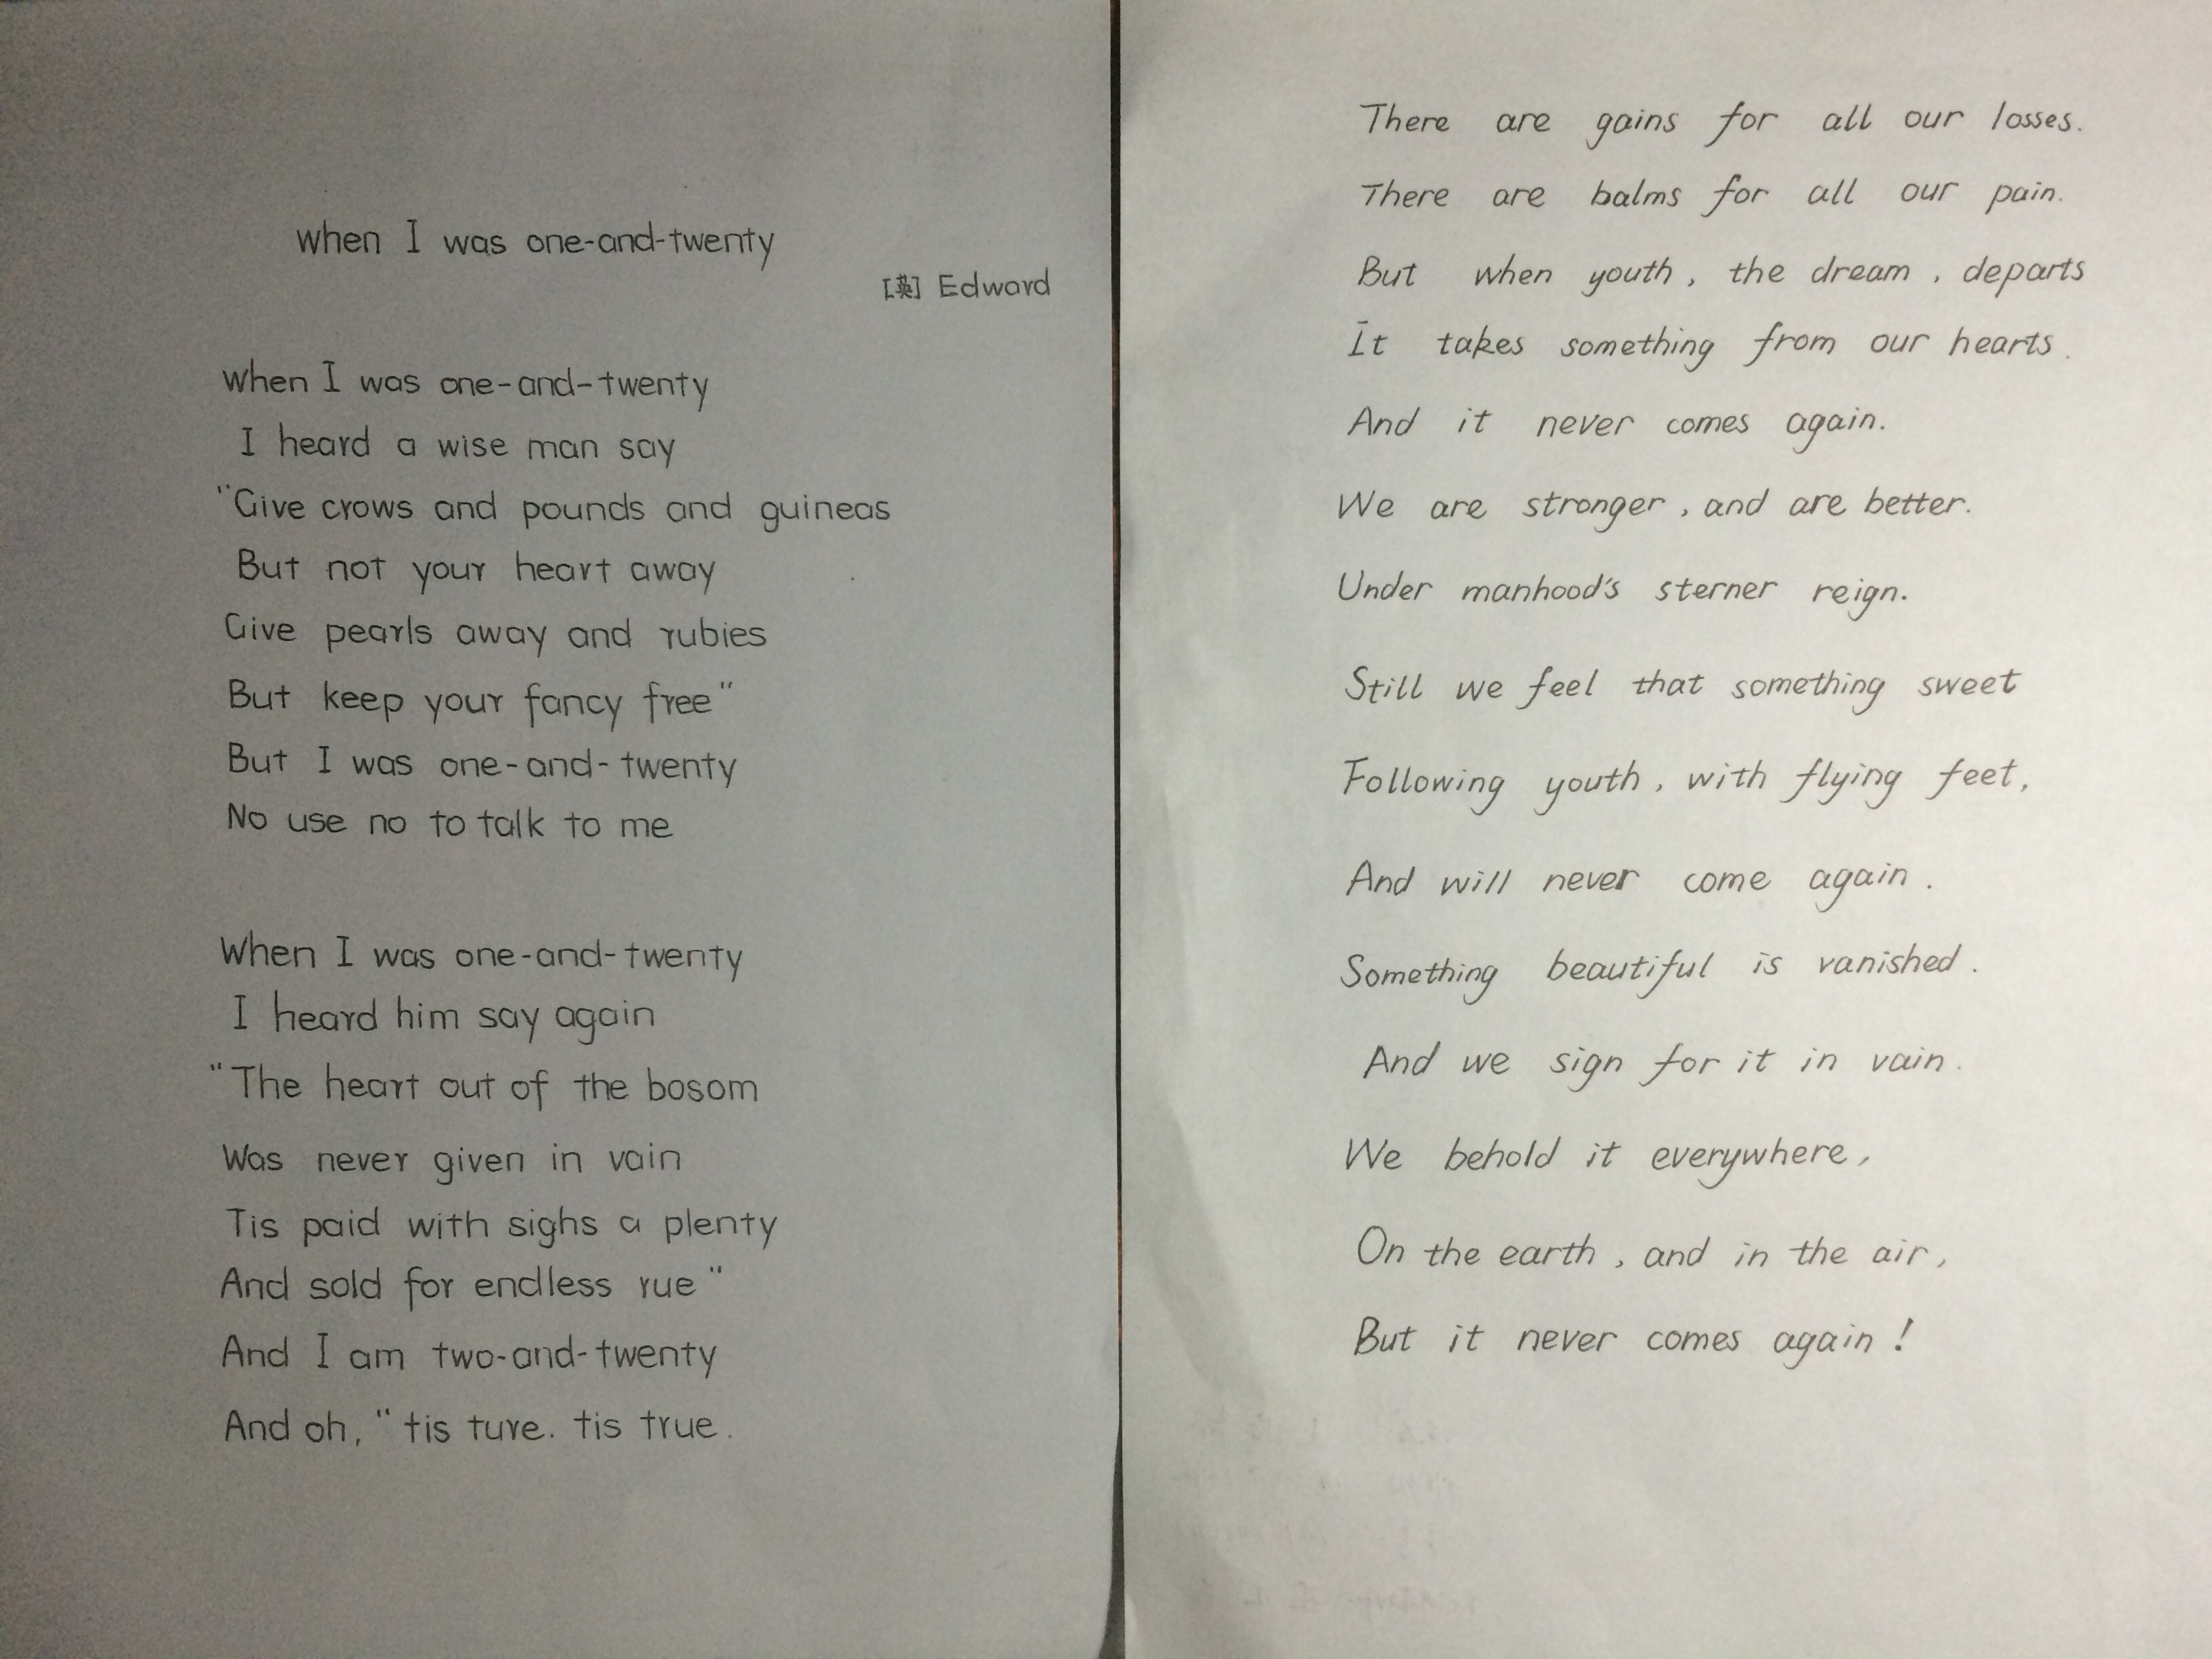 when I was one-and-twenty
[英] Edward
when I was one-and-twenty
I heard a wise man say
"Give crows and pounds and guineas
But not your heart away
Give pearls away and rubies
But keep your fancy free"
But I was one-and-twenty
No use no to talk to me
When I was one-and-twenty
I heard him say again
"The heart out of the bosom
Was never given in vain
Tis paid with sighs a plenty
And sold for endless rue"
And I am two-and-twenty
And oh, "tis ture. tis true.
There are gains for all our losses.
There are balms for all our pain.
But when youth, the dream, departs
It takes something from our hearts.
And it never comes again.
We are stronger, and are better.
Under manhood's sterner reign.
Still we feel that something sweet
Following youth, with flying feet,
And will never come again.
Something beautiful is vanished.
And we sign for it in vain.
We behold it everywhere,
On the earth, and in the air,
But it never comes again!